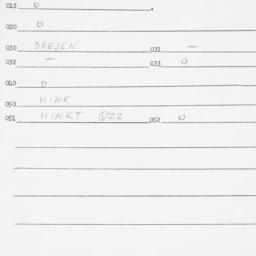 012 0
020 0
030 DREJEN 031 –
032 – 033 0
040 0
050 HINK
051 HINKT QZZ 052 0